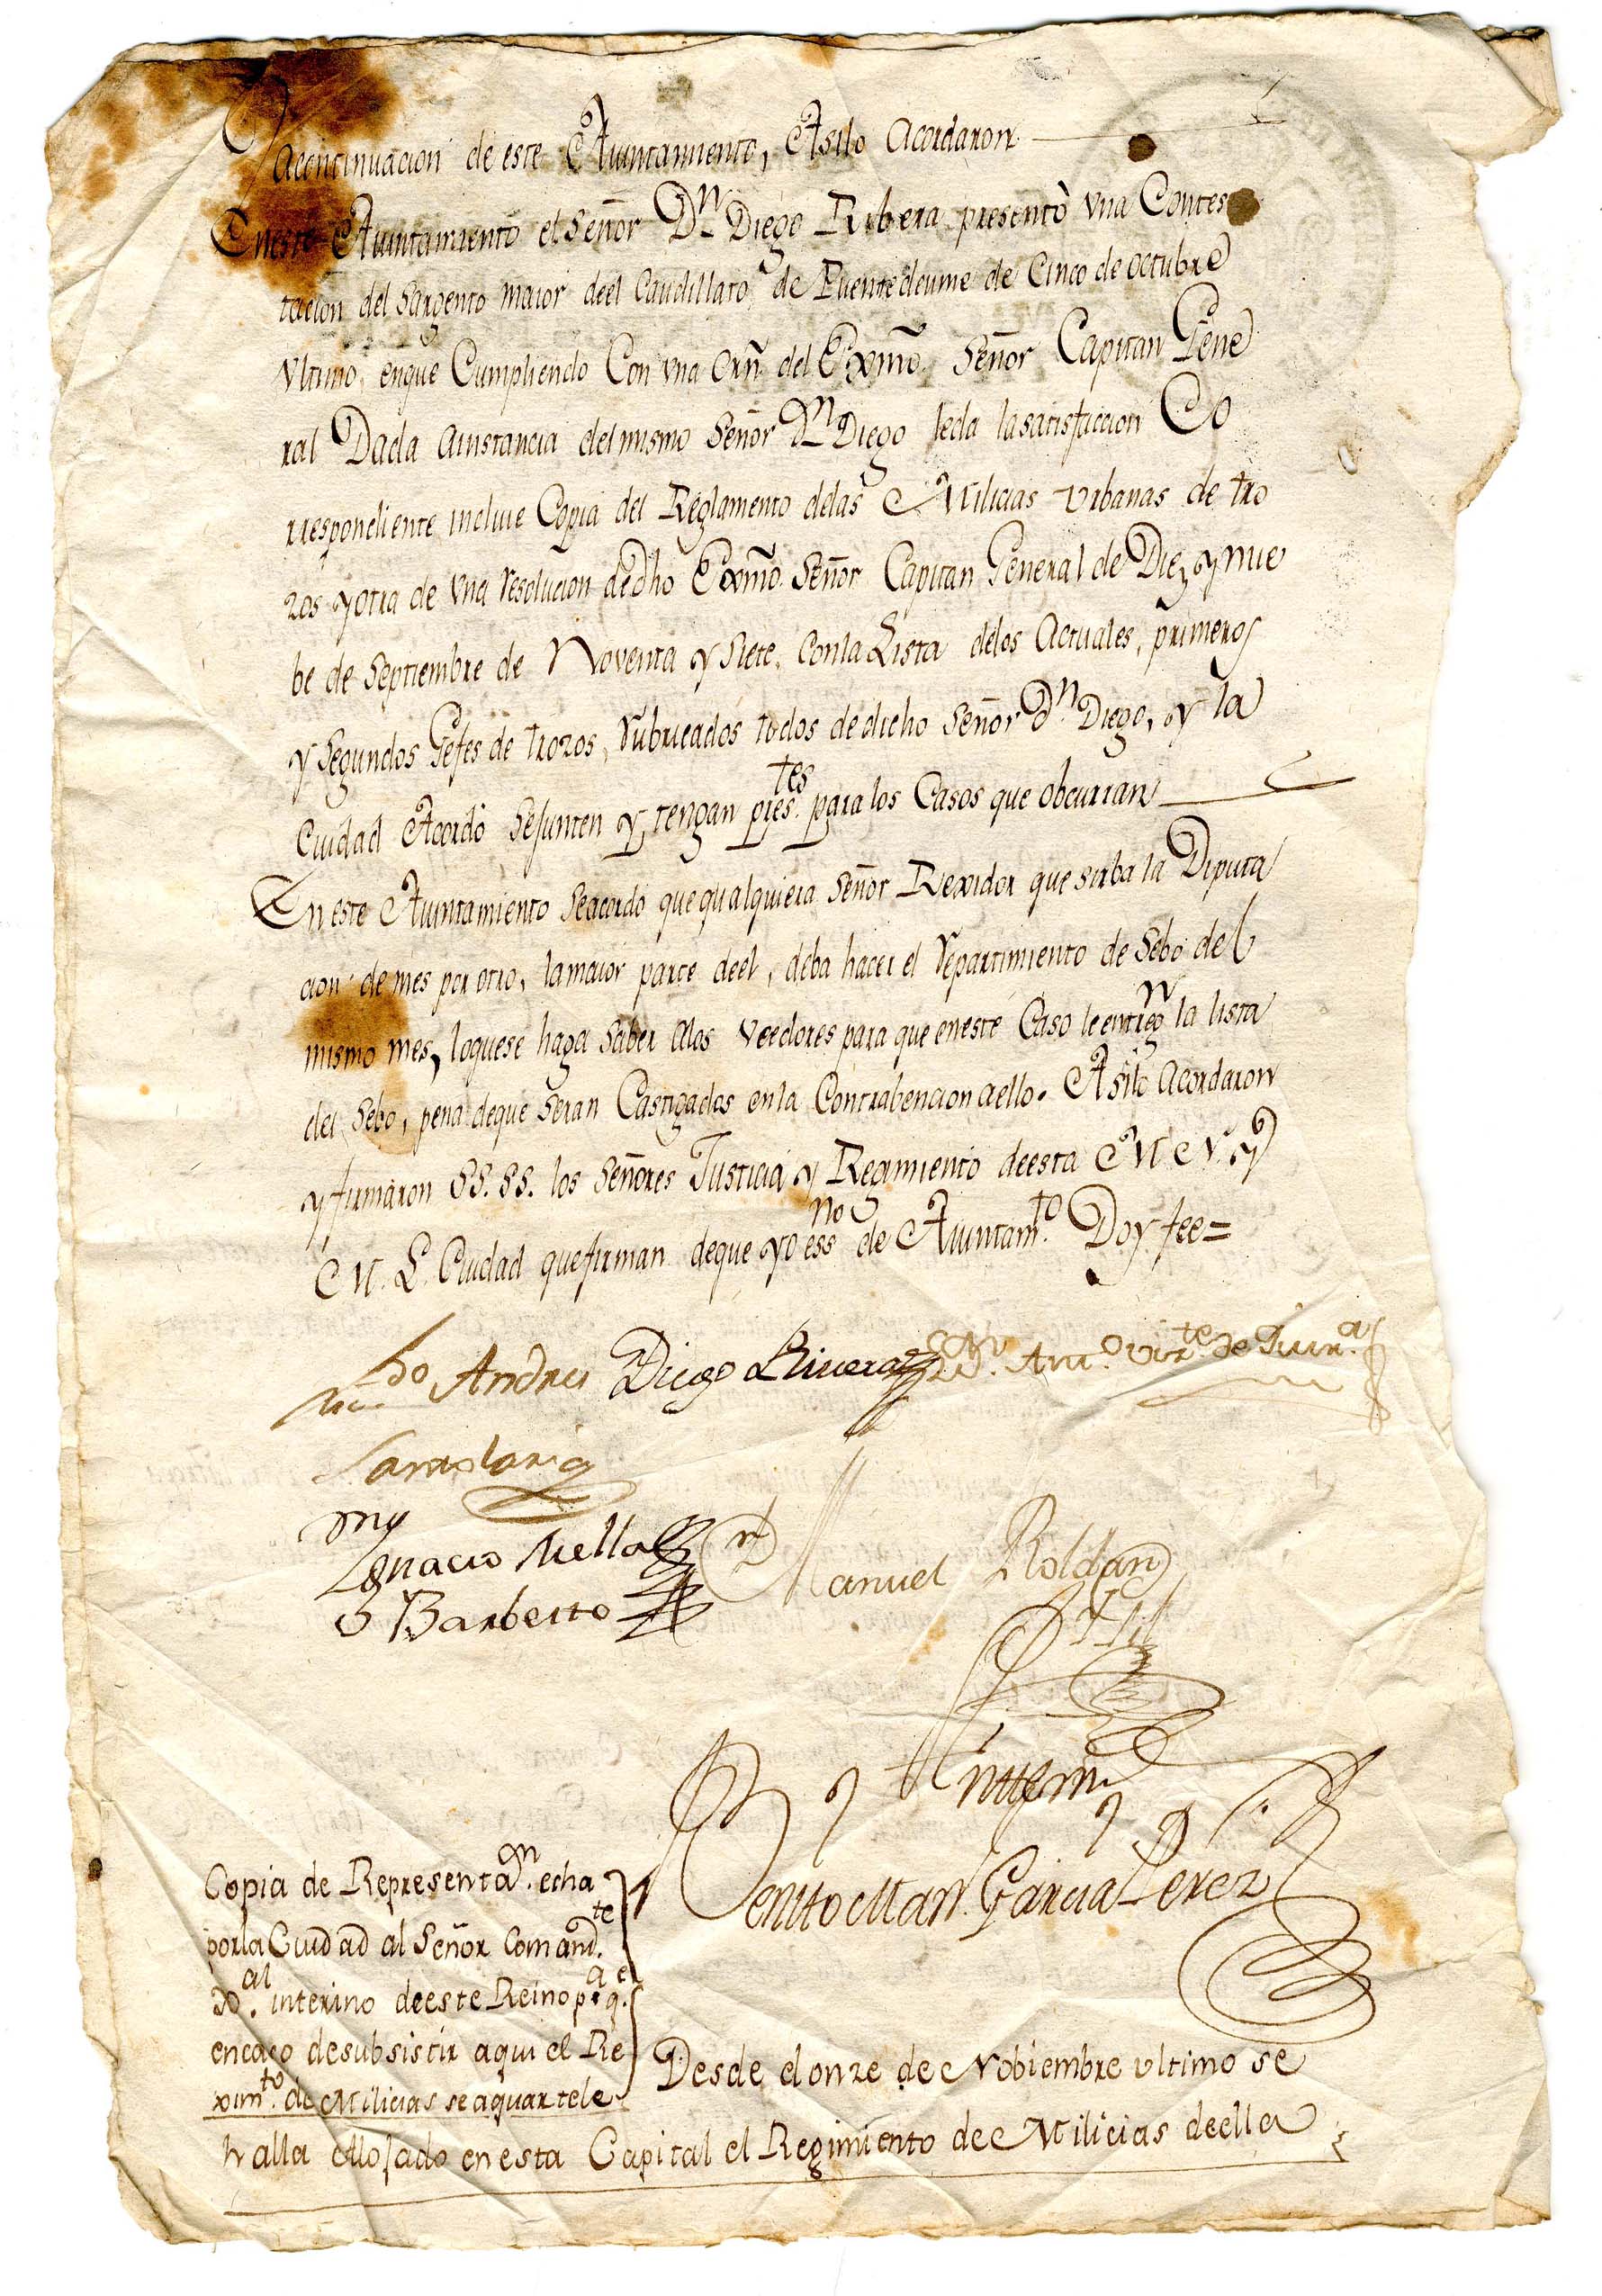 acontinuacion de este Aiuntamiento, Asilo Acordaron
Eneste Aiuntamiento el Señor Dn Diego Ribera presentò vna Contes
tacion del Sargento maior deel Caudillato de Puentedeume de Cinco de octubre
vltimo, enque Cumpliendo Con vna Orñ del Exmõ. Señor Capitan Gene
ral Dada ainstancia delmismo Señor Dn Diego leda lasatisfaccion Co
rrespondiente incluie Copia del Reglamento delas Milicias Urbanas de tro
zos yotra de vna resolucion dedho Exmõ. Señor Capitan General de Diez y nue
be de Septiembre de Noventa y Siete, conla Lista delos Actuales, primeros
y Segundos Gefes de trozos, rubricados todos dedicho Señor Dn Diego, y la
Ciudad Acordó Sejunten y tengan pres.tes para los Casos que obcurran
Eneste Aiuntamiento Seacordó que qualquiera Señor Rexidor que sirba la Diputa
cion de mes por otro, lamaior parte deel, deba hacer el repartimiento de Sebo del
mismo mes, loquese haga Saber alos Veedores para que eneste Caso le entreg.n la lista
del Sebo, pena deque Seran Castigados enla Contrabencion aello. Asilo Acordaron
y firmaron SS. SS. los Señores Justicia y Regimiento deesta M. N. y
M. L. Ciudad quefirman deque yo essno de Aiuntam.to Doy fee=
Andres Diego Rivera
Ignacio Mella
Manuel Roldan
y Barberro
y Gil
Antemi
Benito Man.l Garcia Perez
Copia de Representa.on echa
porla Ciudad al Señor Comand.te
G.al interino deeste Reino p.a q.e
encaso desubsistir aqui el Re
xim.to de Milicias se aquartele
Desde el onze de Nobiembre vltimo se
halla Alojado en esta Capital el Regimiento de Milicias deella